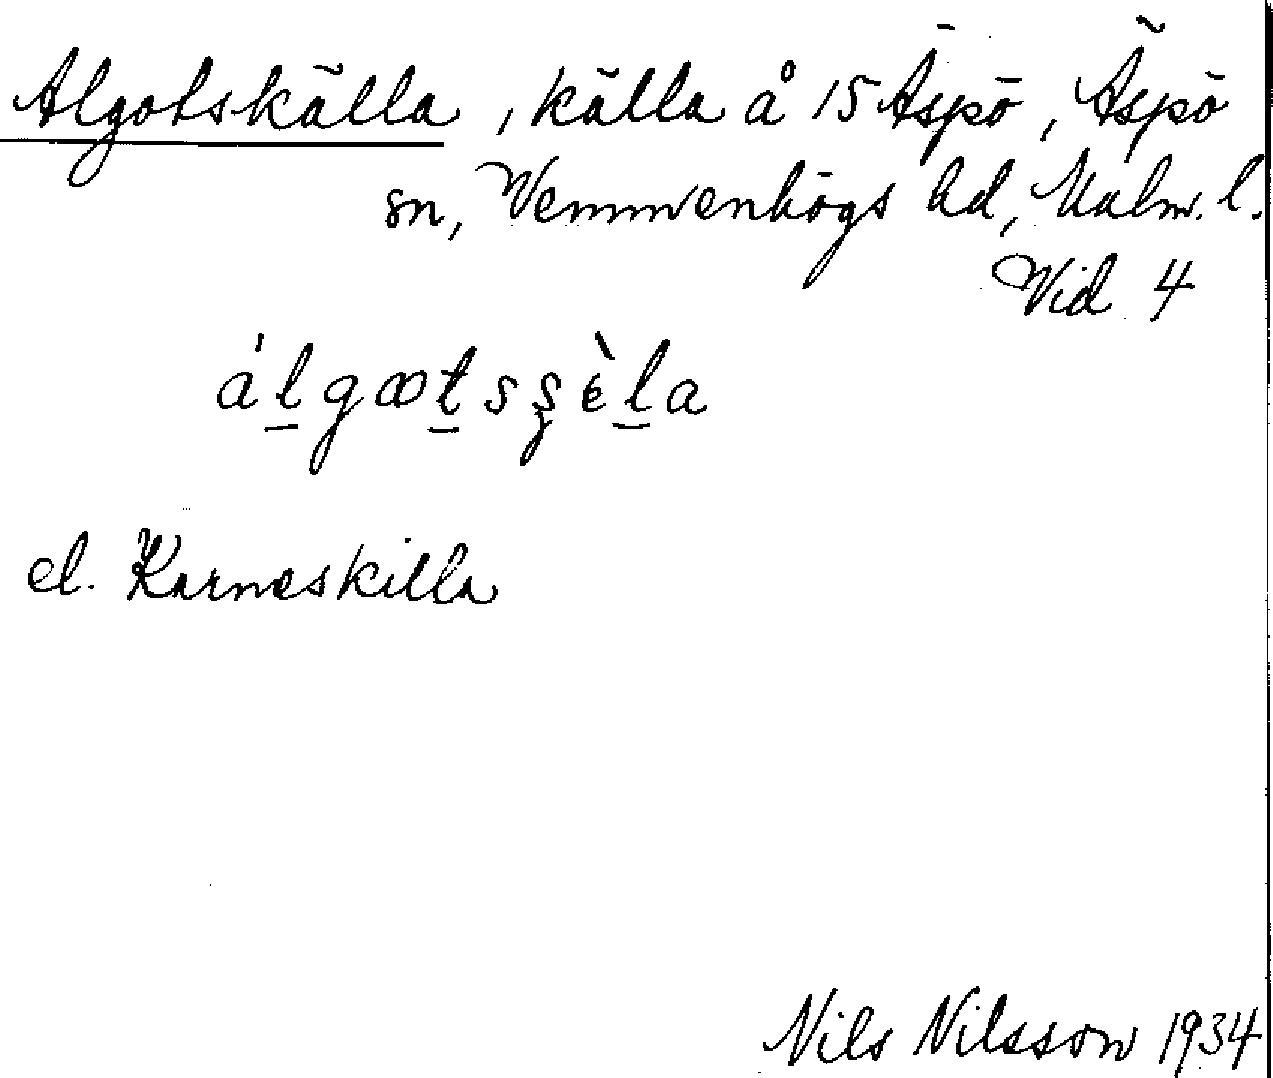 Algotskälla, källa å 15 Äspö, Äspö
sn, Vemmenhögs hd, Malm. l.
Vid 4
el. Karneskilla
Nils Nilsson 1934